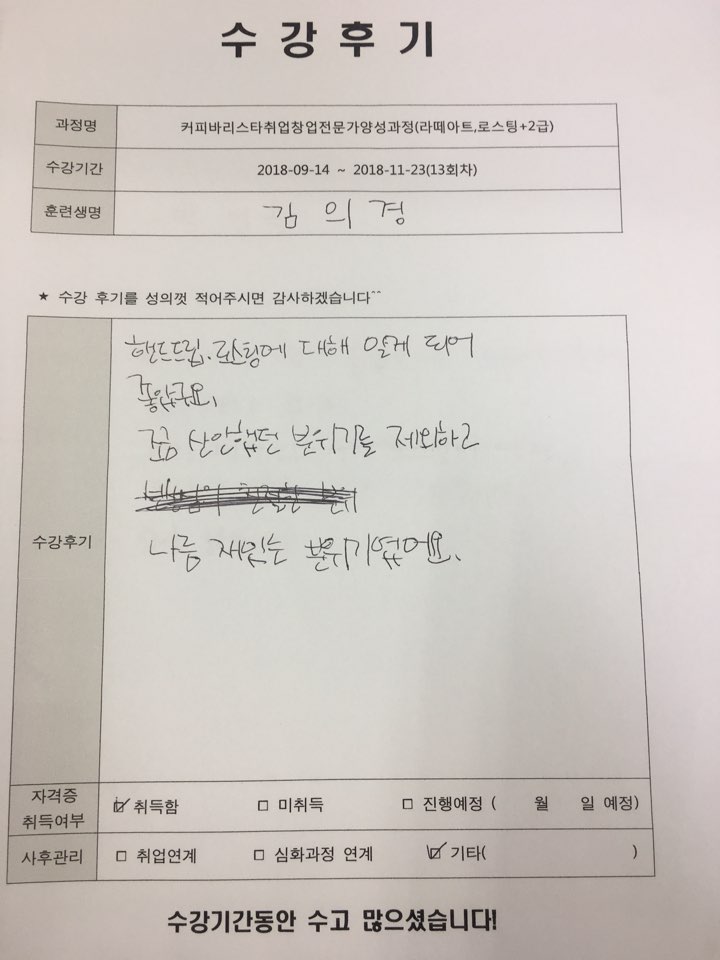 수강후기
과정명 커피바리스타취업창업전문가양성과정(라떼아트,로스팅+2급)
수강기간 2018-09-14 ~ 2018-11-23(13회차)
훈련생명 김 의 경
★ 수강 후기를 성의껏 적어주시면 감사하겠습니다^^
수강후기
핸드드립.로스팅에 대해 알게 되어
좋았구요,
조금 산만했던 분위기를 제외하고
나름 재밌는 분위기였어요.
자격증 취득여부 ☑ 취득함 □ 미취득 □ 진행예정 ( 월 일 예정)
사후관리 □ 취업연계 □ 심화과정 연계 ☑ 기타( )
수강기간동안 수고 많으셨습니다!